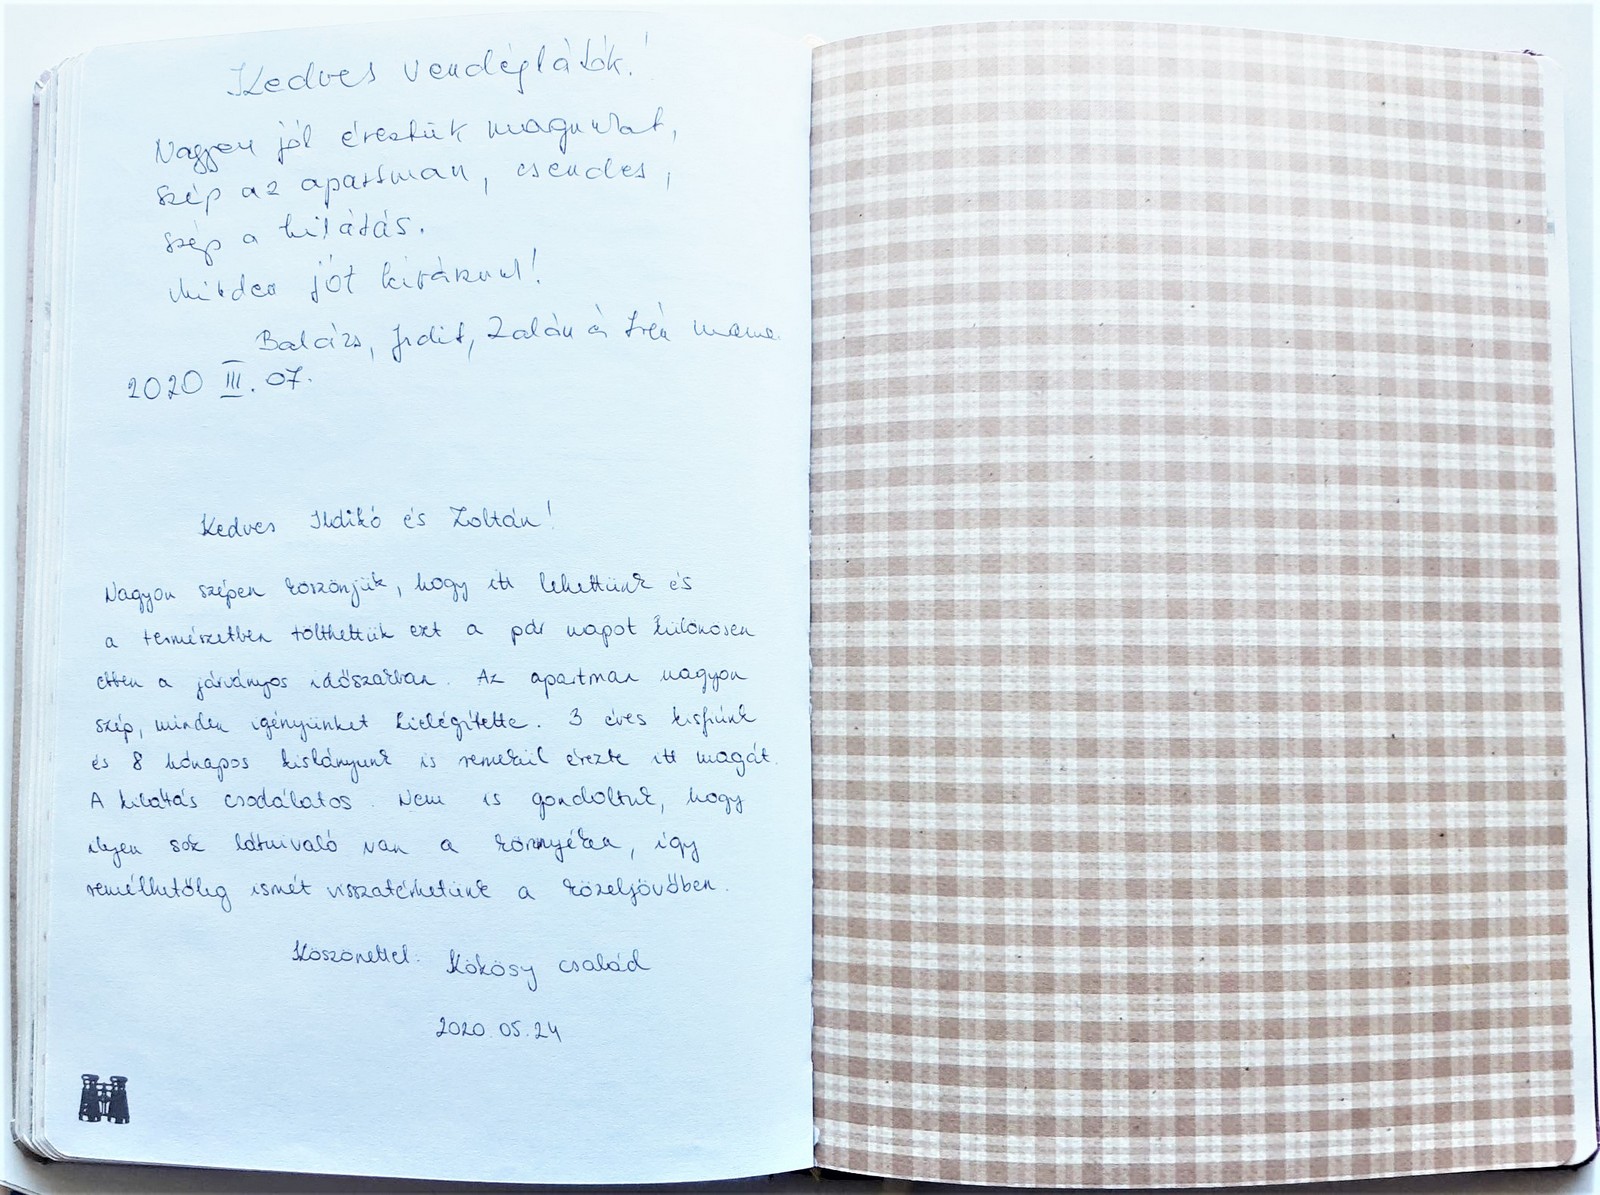 Kedves vendéglátók!
Nagyon jól éreztük magunkat,
szép az apartman, csendes,
szép a kilátás.
Minden jót kívánunk!
Balázs, Judit, Zalán és Irén mama
2020 III. 07.
Kedves Ildikó és Zoltán!
Nagyon szépen köszönjük, hogy itt lehettünk és
a természetben tölthettük ezt a pár napot különösen
ebben a járványos időszakban. Az apartman nagyon
szép, minden igényünket kielégítette. 3 éves kisfiunk
és 8 hónapos kislányunk is remekül érezte itt magát.
A kilátás csodálatos. Nem is gondoltuk, hogy
ilyen sok látnivaló van a környéken, így
remélhetőleg ismét visszatérhetünk a közeljövőben.
Köszönettel: Kökösy család
2020.05.24